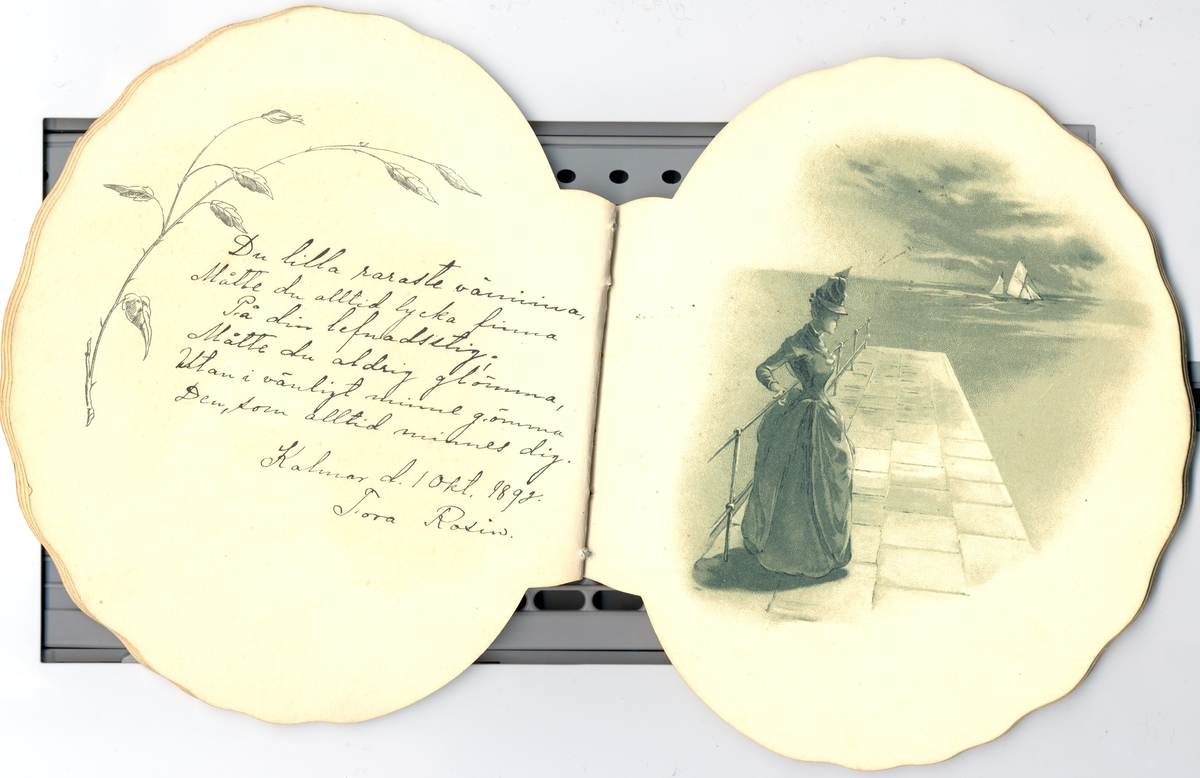 Du lilla raraste väninna,
Måtte du alltid lycka finna
På din lefnadsstig;
Måtte du aldrig glömma,
Utan i vänligt minne gömma
Den, som alltid minnes dig.
Kalmar d. 1 Okt. 1892.
Tora Rosin.